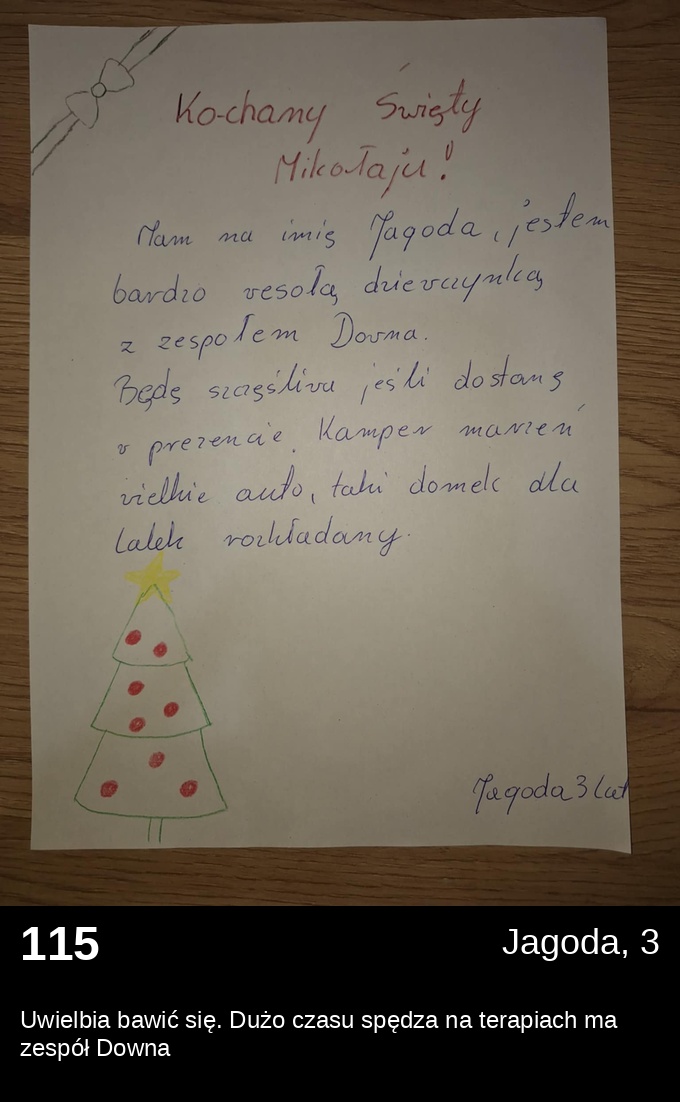 Kochany Święty
Mikołaju!
Mam na imię Jagoda, jestem
bardzo wesołą dziewczynką
z zespołem Downa.
Będę szczęśliwa jeśli dostanę
w prezencie. Kamper marzeń
wielkie auto, taki domek dla
lalek rozkładany.
Jagoda 3 lat
115
Jagoda, 3
Uwielbia bawić się. Dużo czasu spędza na terapiach ma
zespół Downa